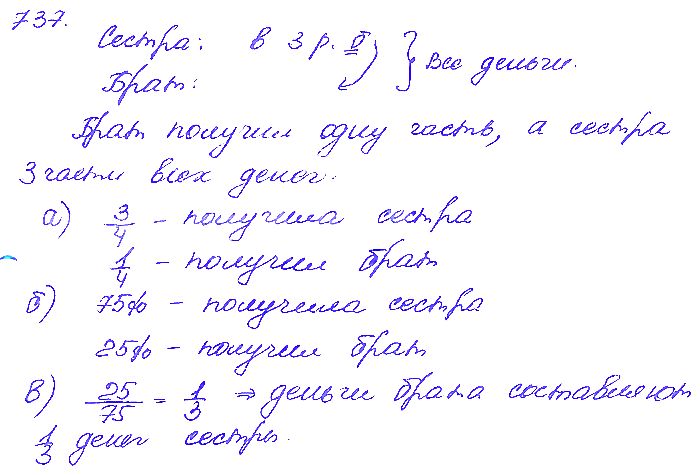 737.
Сестра: в 3 р. б } Все деньги.
Брат:
Брат получил одну часть, а сестра
3 части всех денег.
а) 3/4 - получила сестра
1/4 - получил брат
б) 75% - получила сестра
25% - получил брат
в) 25/75 = 1/3 ⇒ деньги брата составляют
1/3 денег сестры.